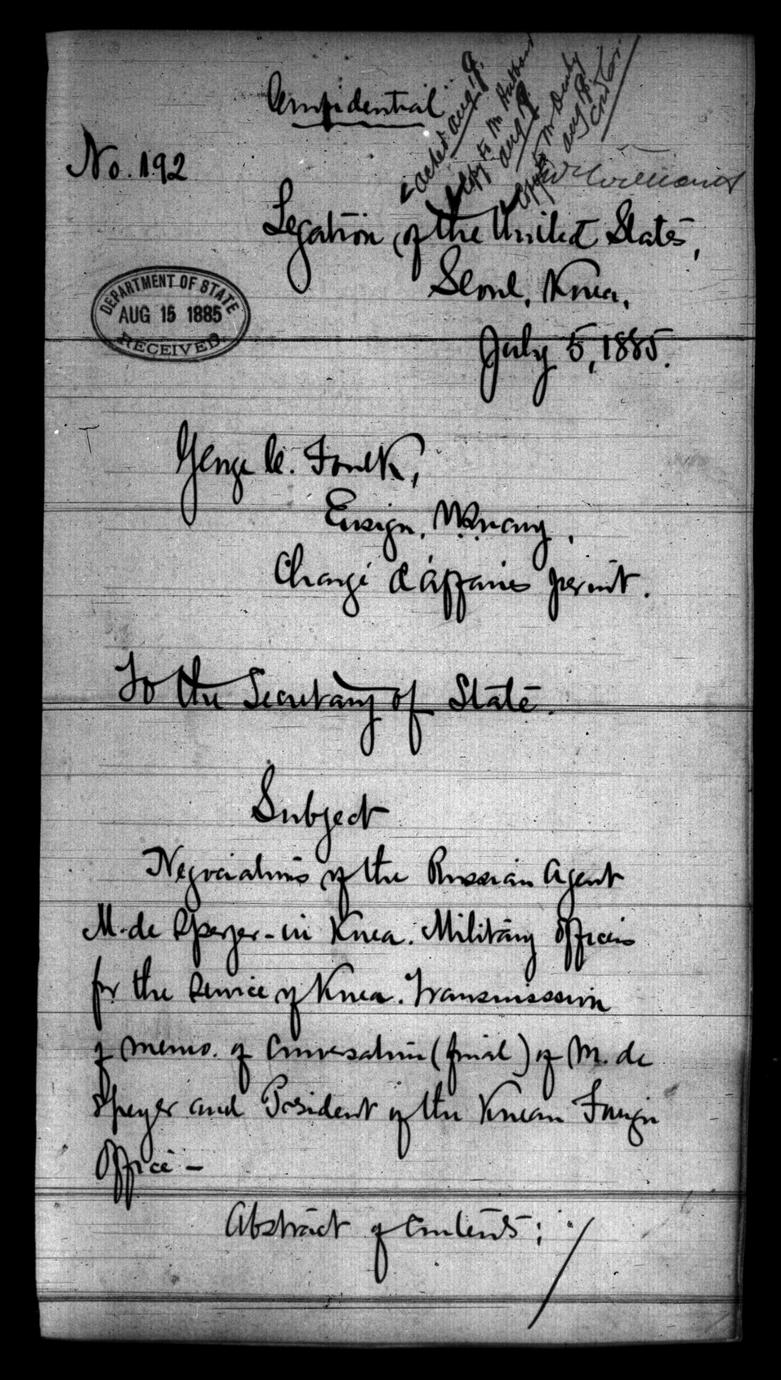 Confidential
acked Aug 18.
Copy to Mr
Aug 18
Copy to Mr Denby
Aug 18
No. 192
Legation of the United States,
Seoul, Korea,
July 5, 1885.
DEPARTMENT OF STATE
AUG 15 1885
RECEIVED.
George C. Foulk,
Ensign, U.S. Navy,
Chargé d'affaires
To the Secretary of State.
Subject
Negociations of the Russian Agent
M. de Speyer - in Korea. Military officers
for the service of Korea. Transmission
of memo. of conversation (final) of M. de
Speyer and President of the Korean Foreign
Office -
Abstract of Contents;